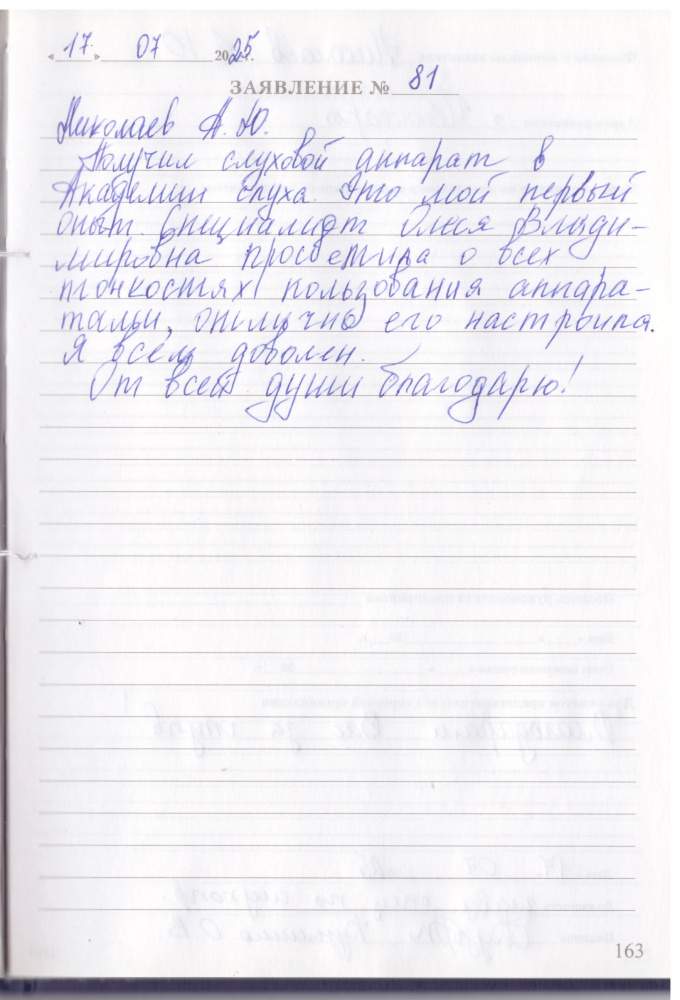 « 17. » 07 2025 г.
ЗАЯВЛЕНИЕ № 81
Николаев А. Ю.
Получил слуховой аппарат в
Академии слуха. Это мой первый
опыт. Специалист Олеся Влади-
мировна просветила о всех
тонкостях пользования аппара-
тами, отлично его настроила.
Я всем доволен.
От всей души благодарю!
163